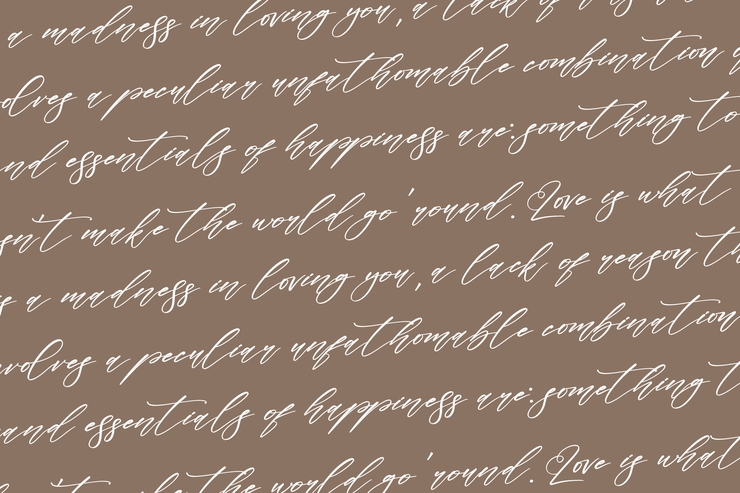 a madness in loving you, a lack of
olves a peculiar unfathomable combination
nd essentials of happiness are: something to
sn't make the world go 'round. Love is what
s a madness in loving you, a lack of reason th
volves a peculiar unfathomable combination
and essentials of happiness are: something t
the world go 'round. Love is what